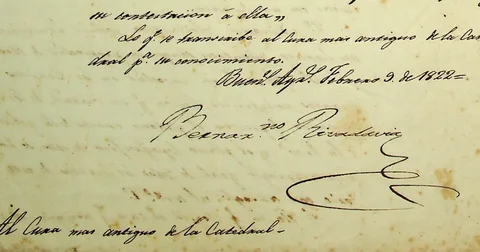 su contestacion á ella„
Lo q.e se transcribe al Cura mas antiguo de la Cate
dral p.a su conocimiento.
Buen.s Ayr.s Febrero 9. de 1822=
Bernar.no Rivadavia
Al Cura mas antiguo de la Catedral-